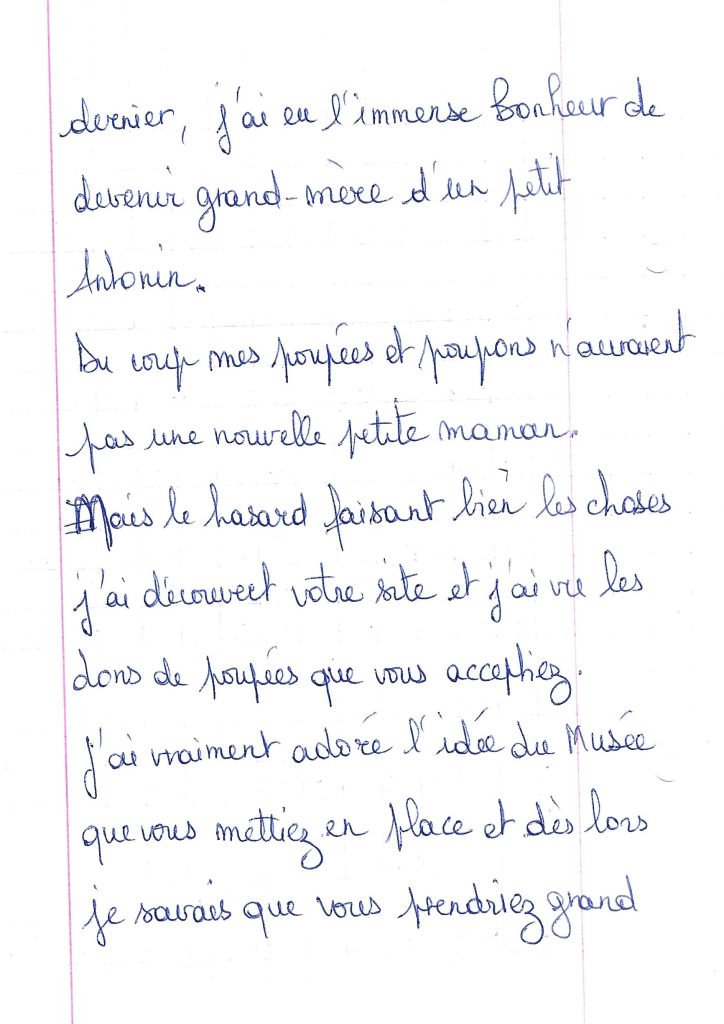 dernier, j'ai eu l'immense bonheur de
devenir grand-mère d'un petit
Antonin.
Du coup mes poupées et poupons n'auraient
pas une nouvelle petite maman.
Mais le hasard faisant bien les choses
j'ai découvert votre site et j'ai vu les
dons de poupées que vous acceptiez.
J'ai vraiment adoré l'idée du Musée
que vous mettiez en place et dès lors
je savais que vous prendriez grand